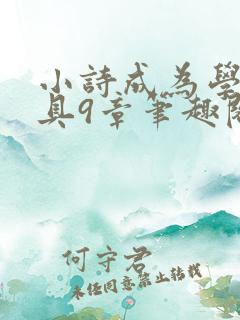 小詩成為學
具9章筆趣
何守君
未经同意禁止转载